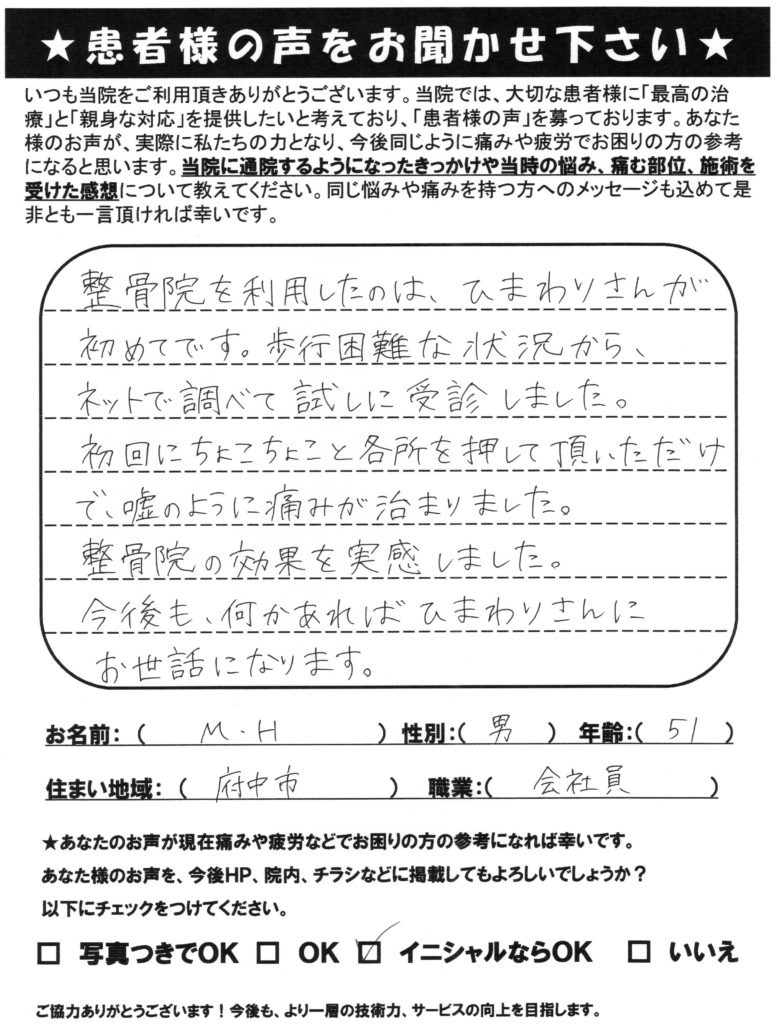 ★患者様の声をお聞かせ下さい★
いつも当院をご利用頂きありがとうございます。当院では、大切な患者様に「最高の治
療」と「親身な対応」を提供したいと考えており、「患者様の声」を募っております。あなた
様のお声が、実際に私たちの力となり、今後同じように痛みや疲労でお困りの方の参考
になると思います。当院に通院するようになったきっかけや当時の悩み、痛む部位、施術を
受けた感想について教えてください。同じ悩みや痛みを持つ方へのメッセージも込めて是
非とも一言頂ければ幸いです。
整骨院を利用したのは、ひまわりさんが
初めてです。歩行困難な状況から、
ネットで調べて試しに受診しました。
初回にちょこちょこと各所を押して頂いただけ
で、嘘のように痛みが治まりました。
整骨院の効果を実感しました。
今後も、何かあればひまわりさんに
お世話になります。
お名前：（ M・H ） 性別：（ 男 ） 年齢：（ 51 ）
住まい地域：（ 府中市 ） 職業：（ 会社員 ）
★あなたのお声が現在痛みや疲労などでお困りの方の参考になれば幸いです。
あなた様のお声を、今後HP、院内、チラシなどに掲載してもよろしいでしょうか？
以下にチェックをつけてください。
□ 写真つきでOK □ OK ☑ イニシャルならOK □ いいえ
ご協力ありがとうございます！今後も、より一層の技術力、サービスの向上を目指します。